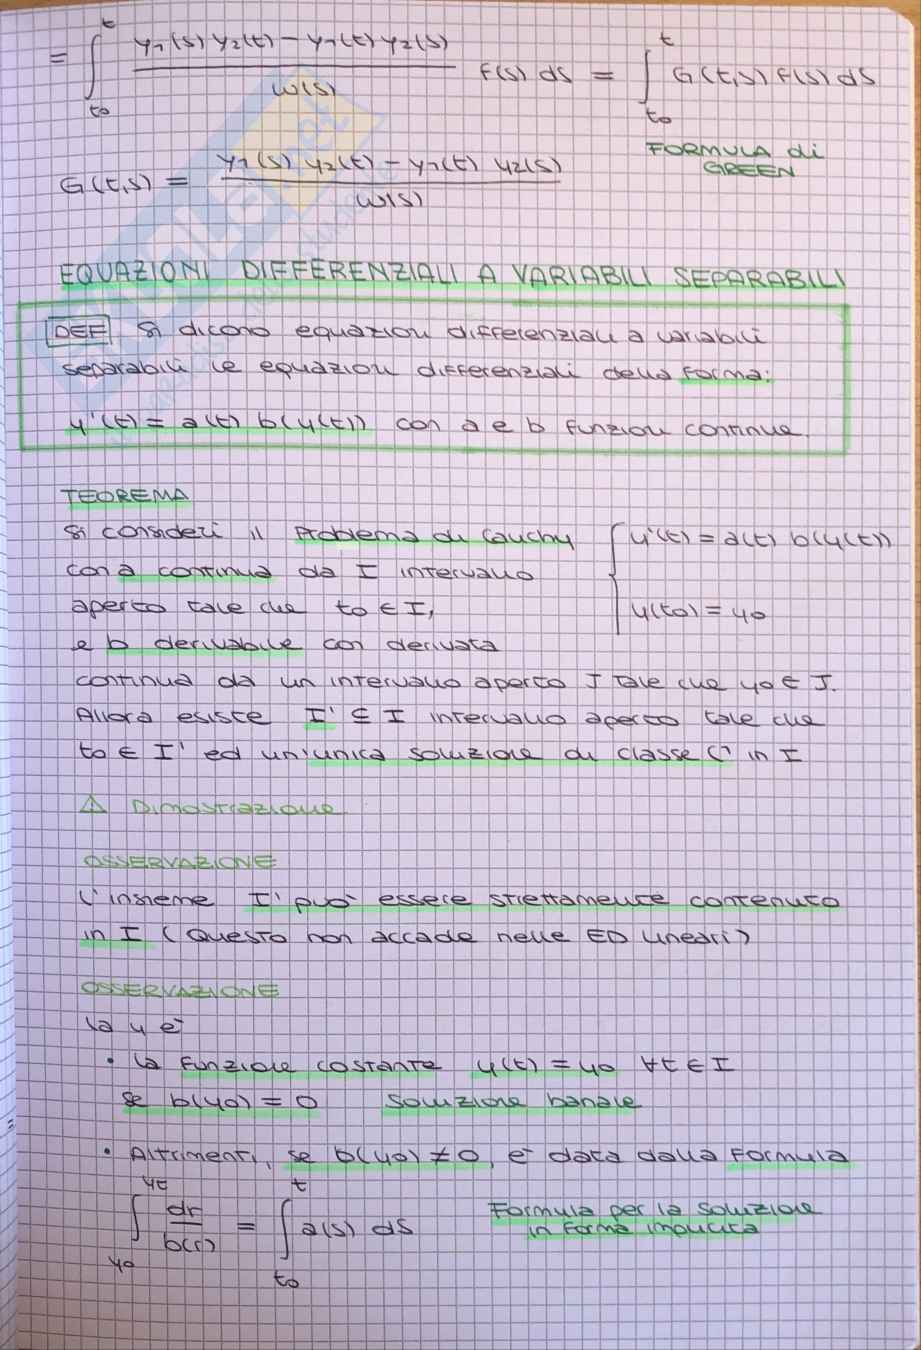 = ∫_{t0}^{t} (y1(s) y2(t) − y1(t) y2(s)) / w(s) f(s) ds = ∫_{t0}^{t} G(t,s) f(s) ds
FORMULA di
GREEN
G(t,s) = (y1(s) y2(t) − y1(t) y2(s)) / w(s)
EQUAZIONI DIFFERENZIALI A VARIABILI SEPARABILI
DEF Si dicono equazioni differenziali a variabili
separabili le equazioni differenziali della forma:
y'(t) = a(t) b(y(t)) con a e b funzioni continue.
TEOREMA
Si consideri il problema di Cauchy { y'(t) = a(t) b(y(t))
con a continua da I intervallo
aperto tale che t0 ∈ I, y(t0) = y0
e b derivabile con derivata
continua da un intervallo aperto J tale che y0 ∈ J.
Allora esiste I' ⊆ I intervallo aperto tale che
t0 ∈ I' ed un'unica soluzione di classe C¹ in I
⚠ Dimostrazione
OSSERVAZIONE
L'insieme I' può essere strettamente contenuto
in I (Questo non accade nelle ED lineari)
OSSERVAZIONE
La y è
• la funzione costante y(t) = y0 ∀t ∈ I
se b(y0) = 0 soluzione banale
• Altrimenti, se b(y0) ≠ 0, è data dalla formula
∫_{y0}^{yt} dr / b(r) = ∫_{t0}^{t} a(s) ds
Formula per la soluzione
in forma implicita